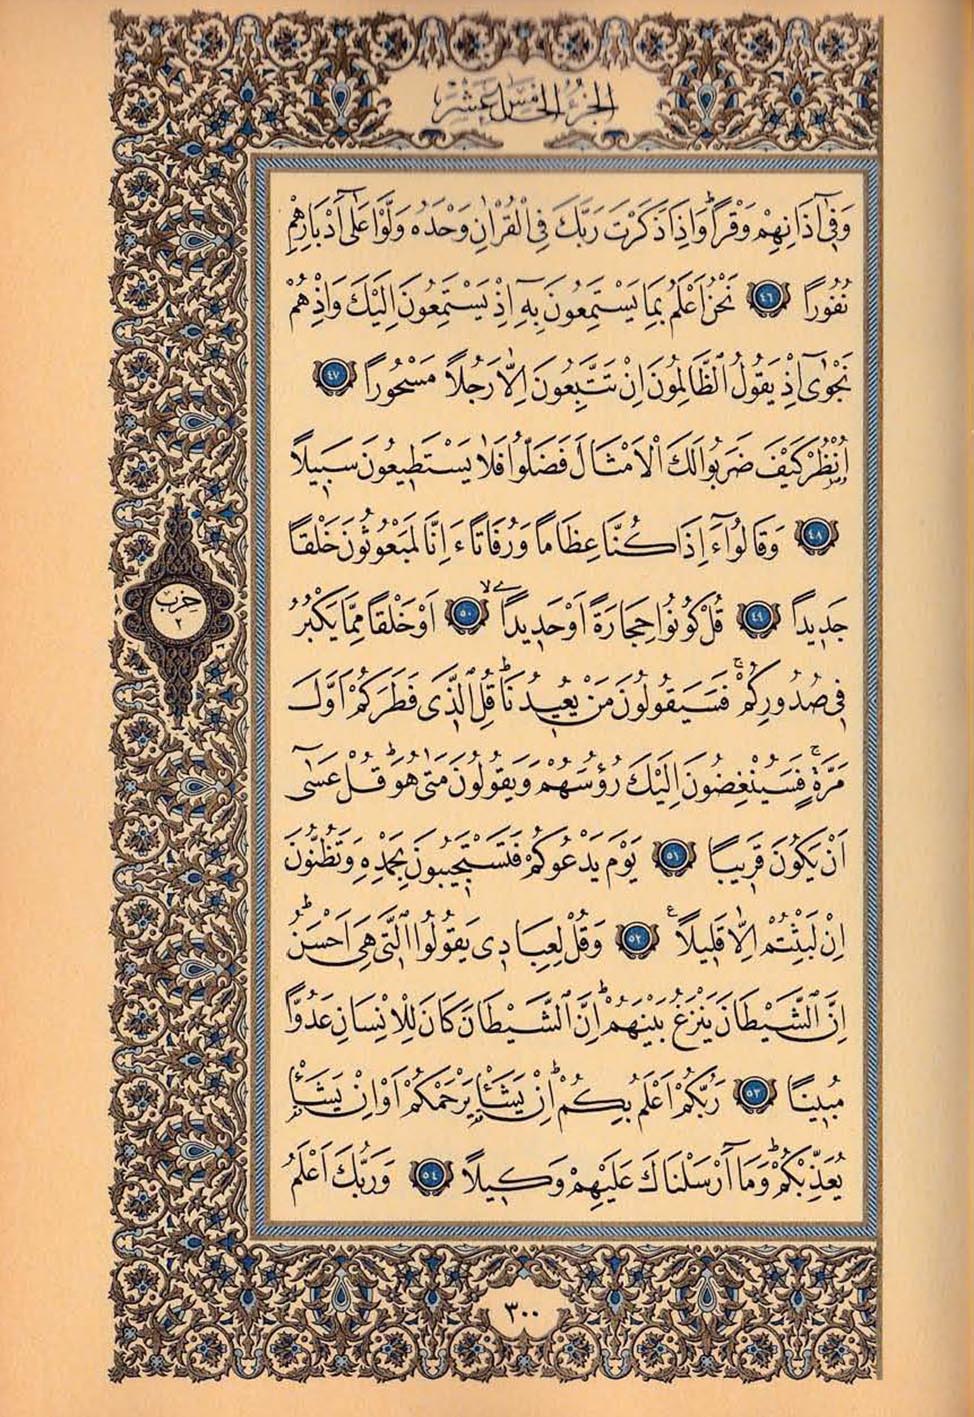 الجزء الخامس عشر
وَفٖٓى اٰذَانِهِمْ وَقْرًاؕ وَاِذَا ذَكَرْتَ رَبَّكَ فِى الْقُرْاٰنِ وَحْدَهُ وَلَّوْا عَلٰٓى اَدْبَارِهِمْ
نُفُورًا ﴿٤٦﴾ نَحْنُ اَعْلَمُ بِمَا يَسْتَمِعُونَ بِهٖٓ اِذْ يَسْتَمِعُونَ اِلَيْكَ وَاِذْ هُمْ
نَجْوٰٓى اِذْ يَقُولُ الظَّالِمُونَ اِنْ تَتَّبِعُونَ اِلَّا رَجُلًا مَسْحُورًا ﴿٤٧﴾
اُنْظُرْ كَيْفَ ضَرَبُوا لَكَ الْاَمْثَالَ فَضَلُّوا فَلَا يَسْتَطٖيعُونَ سَبٖيلًا
﴿٤٨﴾ وَقَالُٓوا ءَاِذَا كُنَّا عِظَامًا وَرُفَاتًا ءَاِنَّا لَمَبْعُوثُونَ خَلْقًا
جَدٖيدًا ﴿٤٩﴾ قُلْ كُونُوا حِجَارَةً اَوْ حَدٖيدًاۙ ﴿٥٠﴾ اَوْ خَلْقًا مِمَّا يَكْبُرُ
فٖى صُدُورِكُمْۚ فَسَيَقُولُونَ مَنْ يُعٖيدُنَاؕ قُلِ الَّذٖى فَطَرَكُمْ اَوَّلَ
مَرَّةٍۚ فَسَيُنْغِضُونَ اِلَيْكَ رُؤُسَهُمْ وَيَقُولُونَ مَتٰى هُوَؕ قُلْ عَسٰٓى
اَنْ يَكُونَ قَرٖيبًا ﴿٥١﴾ يَوْمَ يَدْعُوكُمْ فَتَسْتَجٖيبُونَ بِحَمْدِهٖ وَتَظُنُّونَ
اِنْ لَبِثْتُمْ اِلَّا قَلٖيلًا ﴿٥٢﴾ وَقُلْ لِعِبَادٖى يَقُولُوا الَّتٖى هِىَ اَحْسَنُؕ
اِنَّ الشَّيْطَانَ يَنْزَغُ بَيْنَهُمْؕ اِنَّ الشَّيْطَانَ كَانَ لِلْاِنْسَانِ عَدُوًّا
مُبٖينًا ﴿٥٣﴾ رَبُّكُمْ اَعْلَمُ بِكُمْؕ اِنْ يَشَاْ يَرْحَمْكُمْ اَوْ اِنْ يَشَاْ
يُعَذِّبْكُمْؕ وَمَٓا اَرْسَلْنَاكَ عَلَيْهِمْ وَكٖيلًا ﴿٥٤﴾ وَرَبُّكَ اَعْلَمُ
حزب
٢
٣٠٠